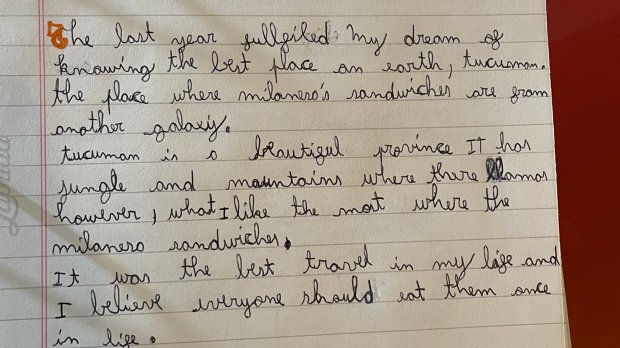 The last year fullfiled My dream of
knowing the best place on earth, tucuman.
the place where milanero's sandwiches are from
another galaxy.
tucuman is a beautiful province IT has
jungle and mountains where there llamas
however, what I like the most where the
milanero sandwiches.
It was the best travel in my life and
I believe everyone should eat them once
in life.